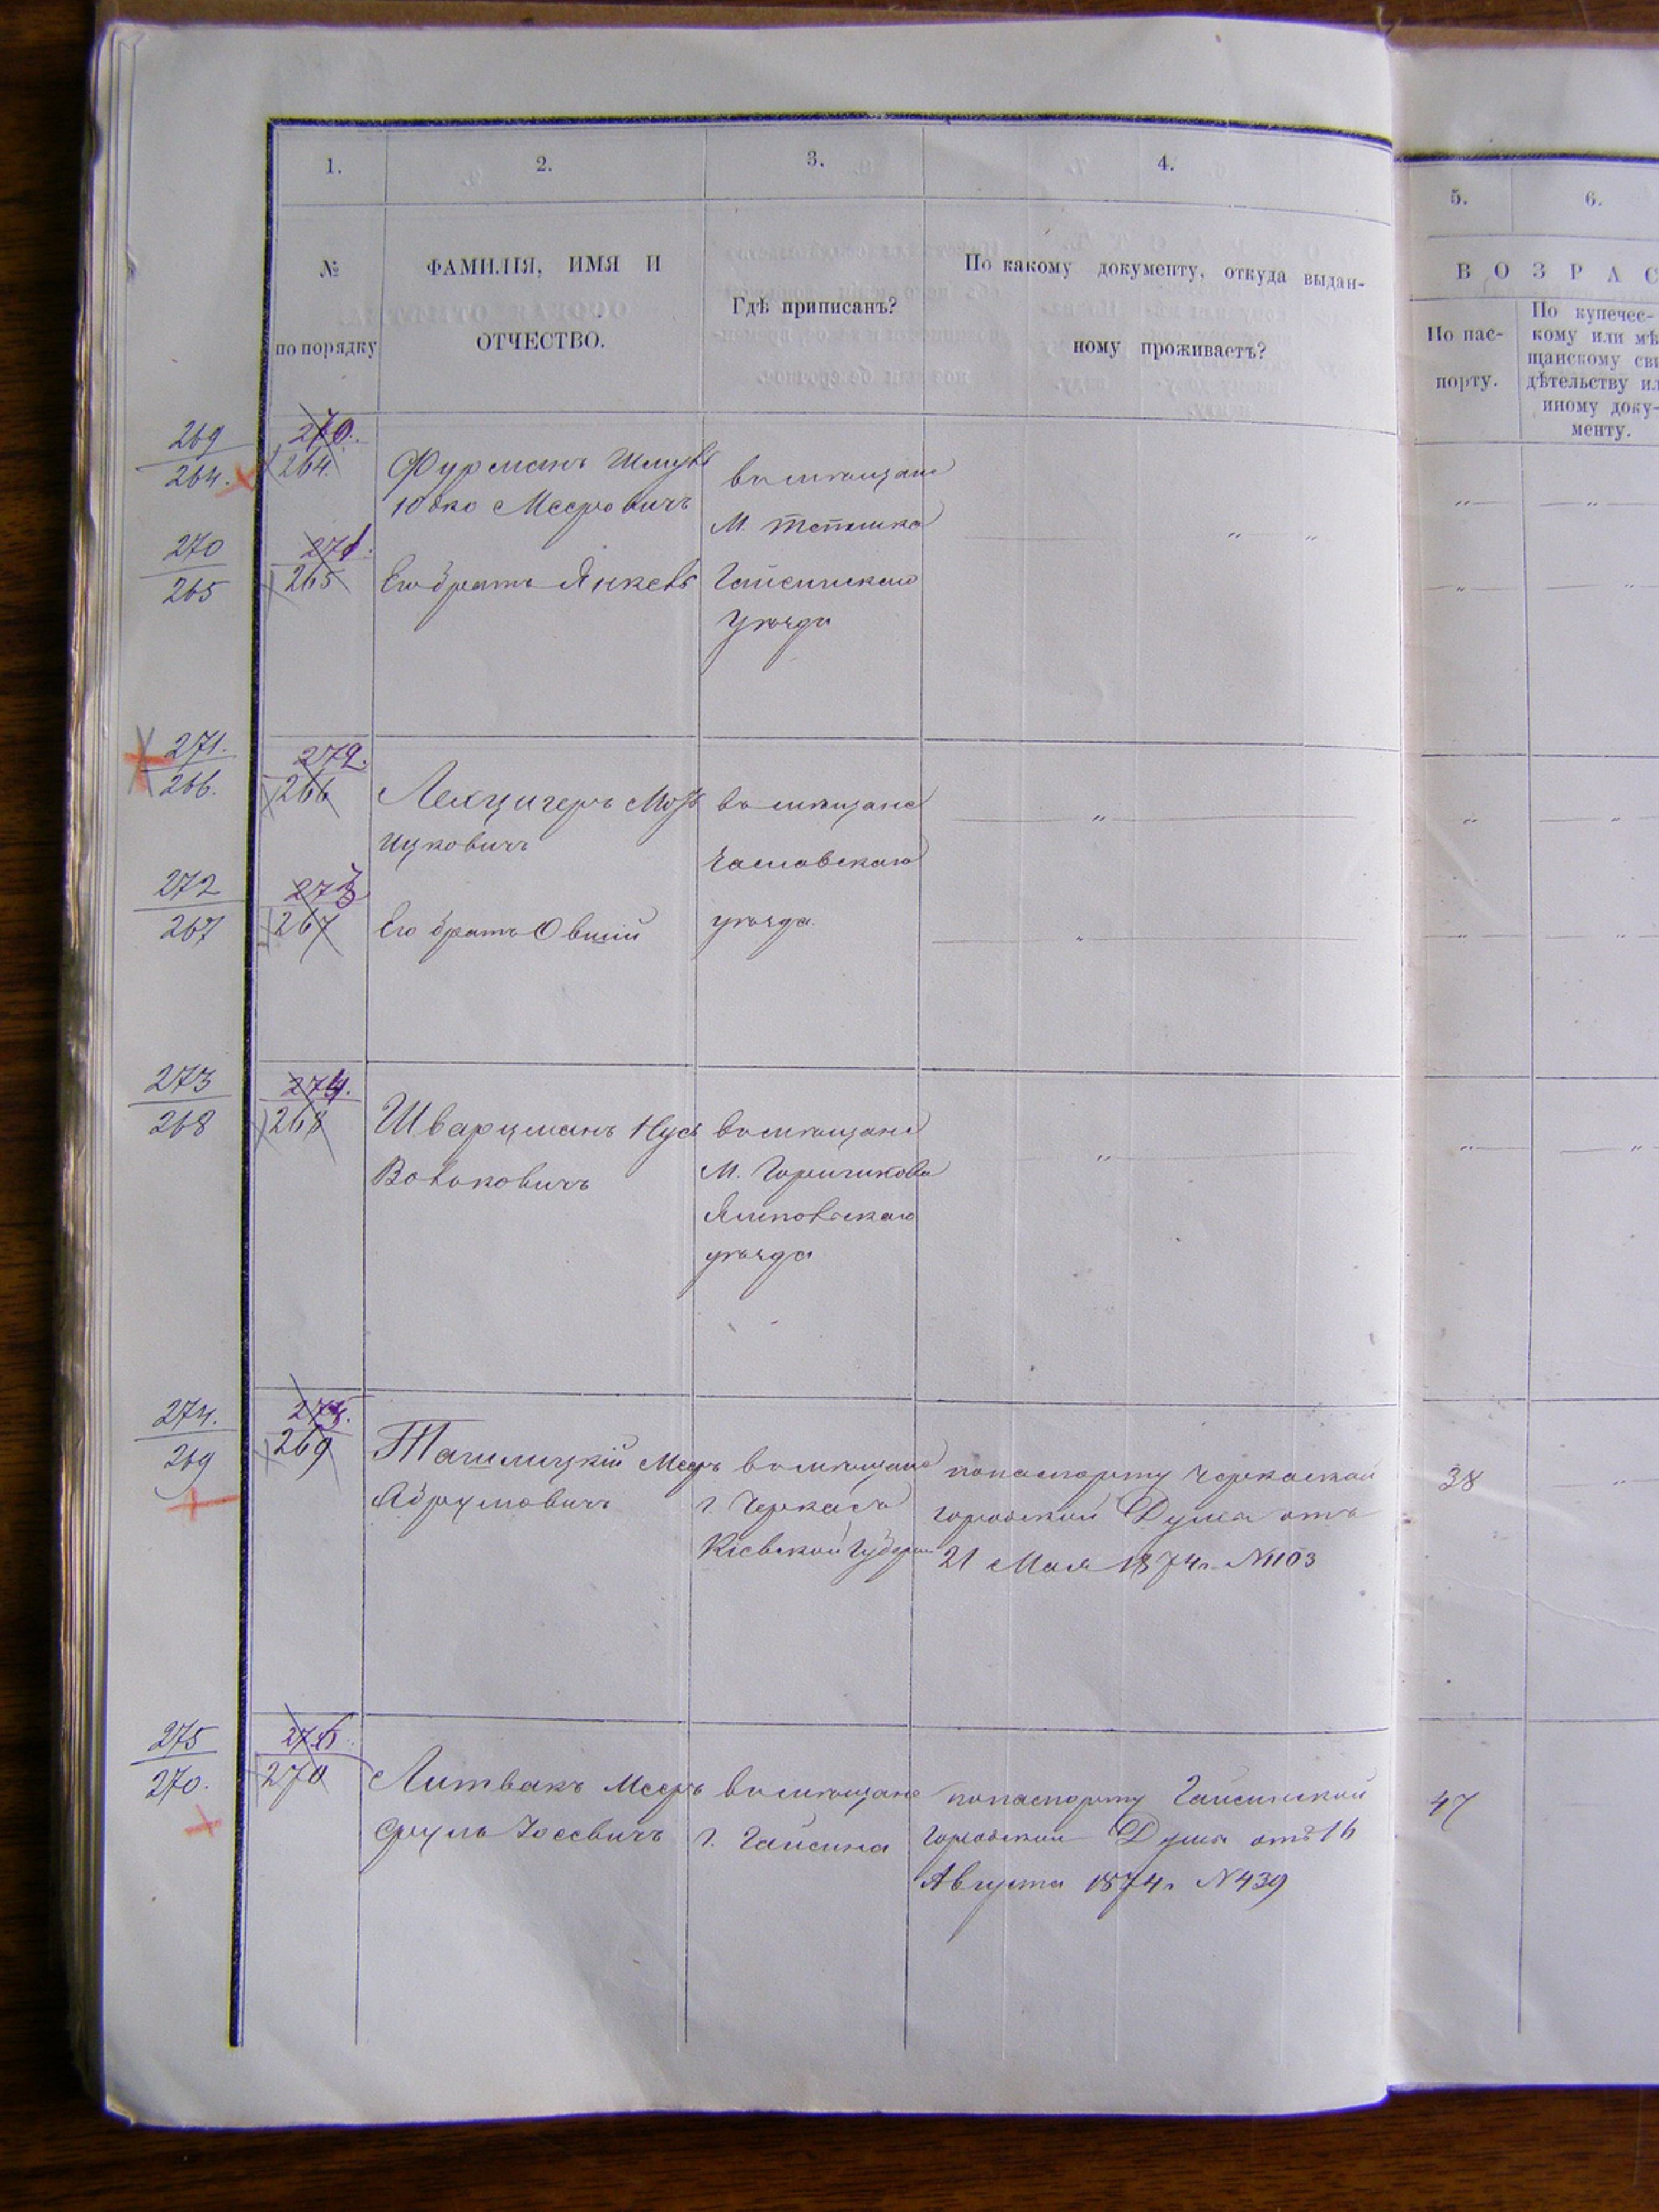 1. 2. 3. 4. 5. 6.
№ по порядку
ФАМИЛІЯ, ИМЯ И
ОТЧЕСТВО.
Гдѣ приписанъ?
По какому документу, откуда выдан-
ному проживаетъ?
ВОЗРАС
По пас-
порту.
По купечес-
кому или мѣ
щанскому сви
дѣтельству ил
иному доку-
менту.
269
264.
270.
264.
Фурманъ Шмуль
Юдко Мееровичъ
въ мѣщане
М. Теплика
270
265
271.
265
Его братъ Янкель
Гайсинскаго
уѣзда
271.
266.
272.
266
Лехцигеръ
Ицковичъ
въ мѣщане
уѣзда.
272
267
273
267
Его братъ Овшій
273
268
274.
268
Шварцманъ Нус
Вольковичъ
въ мѣщане
М.
Ямпольскаго
уѣзда
274.
269
275.
269
Ташлицкій Меер
Абрумовичъ
въ мѣщане
г. Черкасъ
Кіевской Губерніи
по паспорту Черкаской
городской Думы отъ
21 Мая 1874 г. №1103
38
275
270.
276
270
Литвакъ Мееръ
Сруль Іосевичъ
въ мѣщане
г. Гайсина
по паспорту Гайсинской
городской Думы отъ 16
Августа 1874 г. №439
47